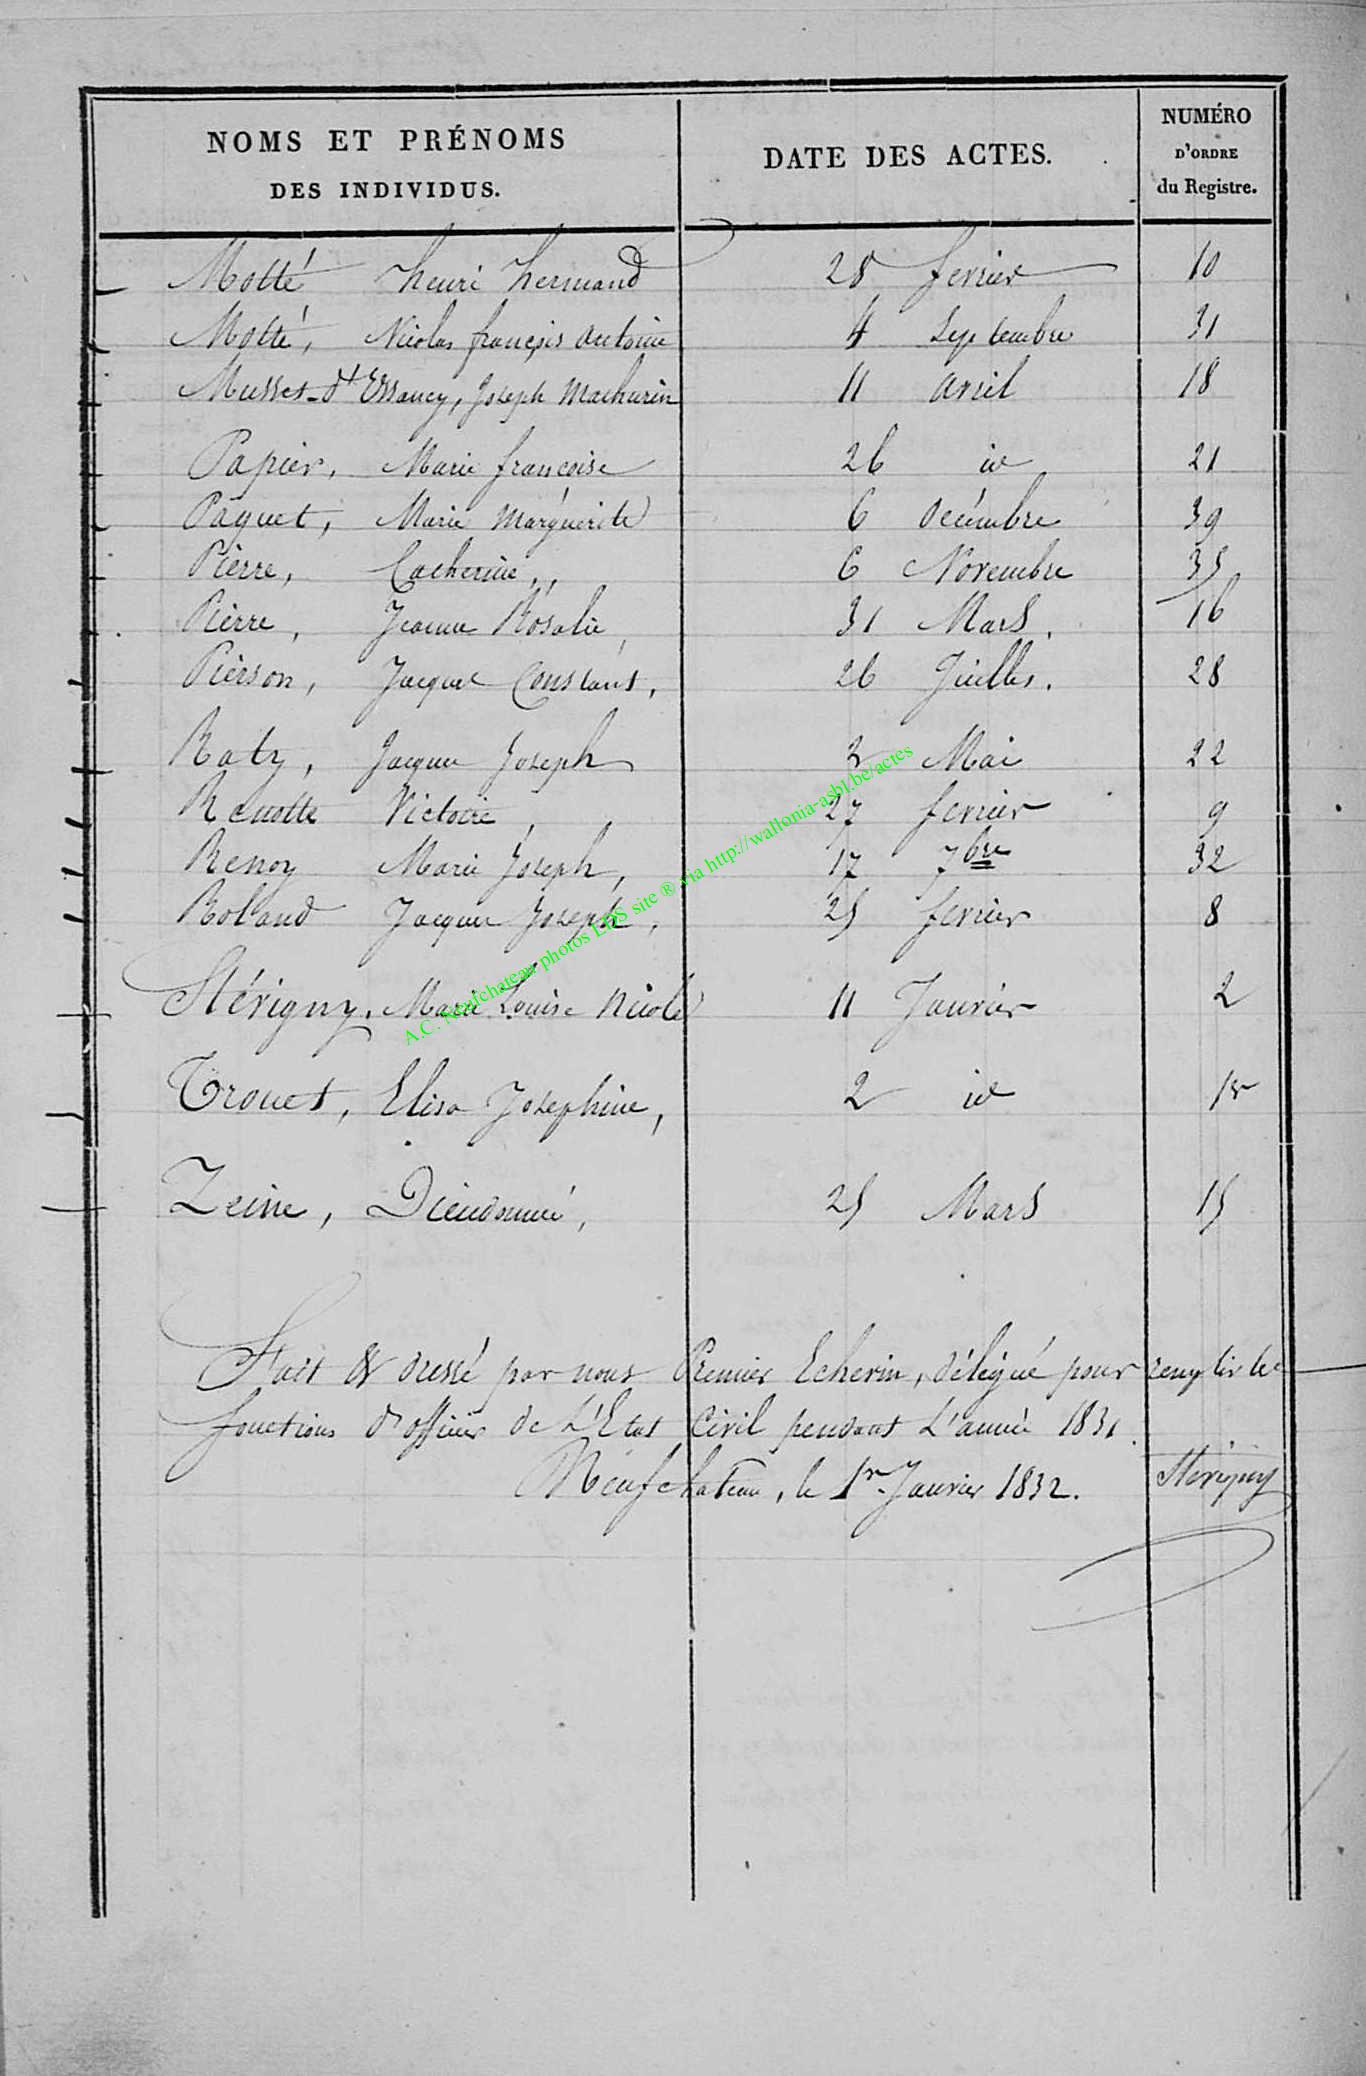 NOMS ET PRÉNOMS
DES INDIVIDUS.
DATE DES ACTES.
NUMÉRO
D'ORDRE
du Registre.
Motté henri hermand 28 fevrier 10
Motté, Nicolas françois antoine 4 Septembre 31
Musset-d'Essancy, Joseph Mathurin 11 avril 18
Papier, Marie françoise 26 id 21
Paquet, Marie Marguerite 6 Décembre 39
Pierre, Catherine, 6 Novembre 35
Pierre, Jeanne Rosalie, 31 Mars. 16
Pierson, Jacques Constant, 26 Juillet. 28
Raty, Jacques Joseph 2 Mai 22
Renotte Victoire, 27 fevrier 9
Renoy Marie Joseph, 17 7bre 32
Roland Jacques Joseph, 25 fevrier 8
Stévigny, Marie Louise Nicole 11 Janvier 2
Trouet, Elisa Josephine, 2 id 1r
Zeine, Dieudonné, 25 Mars 15
Fait & dressé par nous Premier Echevin, délégué pour remplir les
fonctions d'officier de L'Etat Civil pendant L'année 1831.
Neufchateau, le 1r Janvier 1832. Stévigny
A.C. Neufchateau photos LDS site ® via http://wallonia-asbl.be/actes